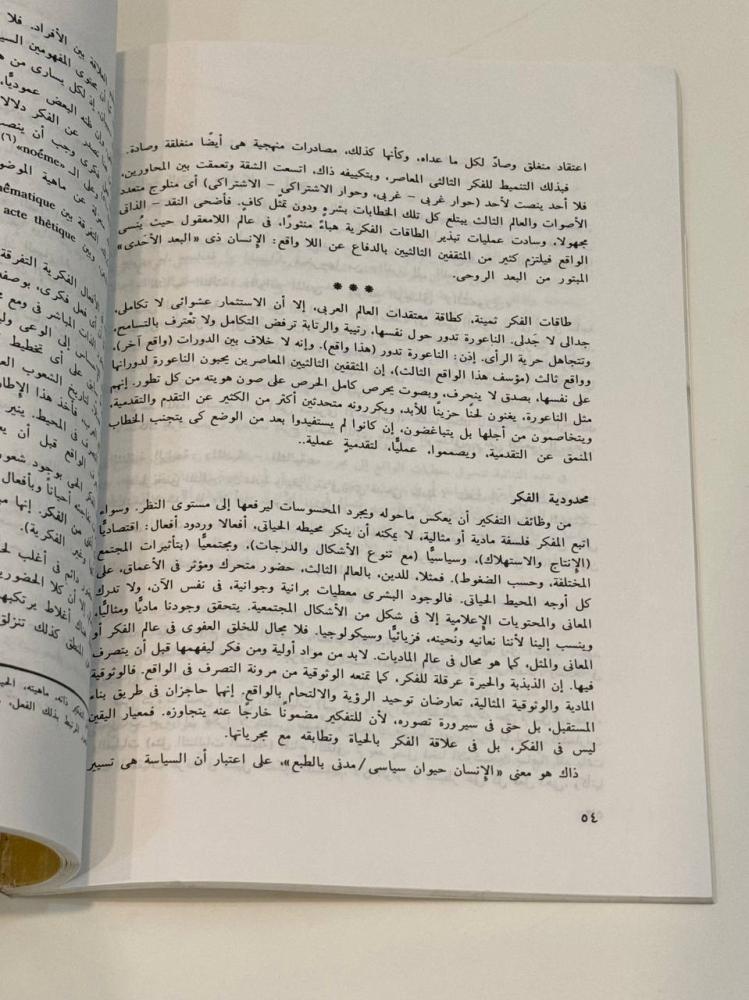 اعتقاد منغلق وصادّ لكل ما عداه، وكأنها كذلك، مصادرات منهجية هى أيضًا منغلقة وصادة.
فبذلك التنميط للفكر الثالثى المعاصر، وبتكييفه ذاك، اتسعت الشقة وتعمقت بين المحاورين،
فلا أحد ينصت لأحد (حوار غربى – غربى، وحوار الاشتراكى – الاشتراكى) أى منلوج متعدد
الأصوات والعالم الثالث يبتلع كل تلك الخطابات بشرهٍ ودون تمثّل كافٍ. فأضحى النقد – الذاتى
مجهولا، وسادت عمليات تبذير الطاقات الفكرية هباءً منثورًا، فى عالم اللامعقول حيث يُنسى
الواقع فيلتزم كثير من المثقفين الثالثيين بالدفاع عن اللا واقع: الإنسان ذى «البعد الأحدى»
المبتور من البعد الروحى.
***
طاقات الفكر ثمينة، كطاقة معتقدات العالم العربى، إلا أن الاستثمار عشوائى لا تكاملى،
جدالى لا جَدلى. الناعورة تدور حول نفسها، رتيبة والرتابة ترفض التكامل ولا تعْترف بالتسامح،
وتتجاهل حرية الرأى. إذن: الناعورة تدور (هذا واقع). وإنه لا خلاف بين الدورات (واقع آخر)،
وواقع ثالث (مؤسف هذا الواقع الثالث)، إن المثقفين الثالثيين المعاصرين يحبون الناعورة لدورانها
على نفسها، بصدق لا ينحرف، وبصوت يحرص كامل الحرص على صون هويته من كل تطور. إنهم
مثل الناعورة، يغنون لحنًا حزينًا للأبد، ويكررونه متحدثين أكثر من الكثير عن التقدم والتقدمية،
ويتخاصمون من أجلها بل يتباغضون، إن كانوا لم يستفيدوا بعد من الوضع كى يتجنب الخطاب
المنمق عن التقدمية، ويصمموا، عمليًّا، لتقدميةٍ عملية..
محدودية الفكر
من وظائف التفكير أن يعكس ماحوله ويجرد المحسوسات ليرفعها إلى مستوى النظر. وسواء
اتبع المفكر فلسفة مادية أو مثالية، لا يمكنه أن ينكر محيطه الحياتى، أفعالا وردود أفعال: اقتصاديًّا
(الإنتاج والاستهلاك)، وسياسيًّا (مع تنوع الأشكال والدرجات)، ومجتمعيًّا (بتأثيرات المجتمع
المختلفة، وحسب الضغوط). فمثلا، للدين، بالعالم الثالث، حضور متحرك ومؤثر فى الأعماق، على
كل أوجه المحيط الحياتى. فالوجود البشرى معطيات برانية وجوانية، فى نفس الآن، ولا تدرك
المعانى والمحتويات الإعلامية إلا فى شكل من الأشكال المجتمعية. يتحقق وجودنا ماديًا ومثاليًّا،
وينسب إلينا لأننا نعانيه ونُحينه، فزيائيًّا وسيكولوجيا. فلا مجال للخلق العفوى فى عالم الفكر أو
المعانى والمثل، كما هو محال فى عالم الماديات. لابد من مواد أولية ومن فكر ليفهمها قبل أن يتصرف
فيها. إن الذبذبة والحيرة عرقلة للفكر، كما تمنعه الوثوقية من مرونة التصرف فى الواقع. فالوثوقية
المادية والوثوقية المثالية، تعارضان توحيد الرؤية والالتحام بالواقع. إنهما حاجزان فى طريق بناء
المستقبل، بل حتى فى سيرورة تصوره، لأن للتفكير مضمونًا خارجًا عنه يتجاوزه. فمعيار اليقين
ليس فى الفكر، بل فى علاقة الفكر بالحياة وتطابقه مع مجرياتها.
ذاك هو معنى «الإنسان حيوان سياسى/مدنى بالطبع»، على اعتبار أن السياسة هى تسيير
٥٤